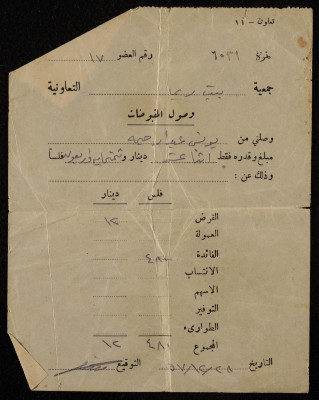 تعاون - ١١
نمرة ٦٠٣١ ورقم العضو ١٧
جمعية بيت ريما التعاونية
وصول المقبوضات
وصلني من يونس عبد
مبلغ وقدره فقط اثنا عشر دينار و فلساً
وذلك عن :
فلس دينار
القرض ١٢
العمولة
الفائدة ٤٨٠
الانتساب
الاسهم
التوفير
الطوارىء
المجموع ٤٨٠ ١٢
التاريخ ٥٧/١٢/٢٨ التوقيع